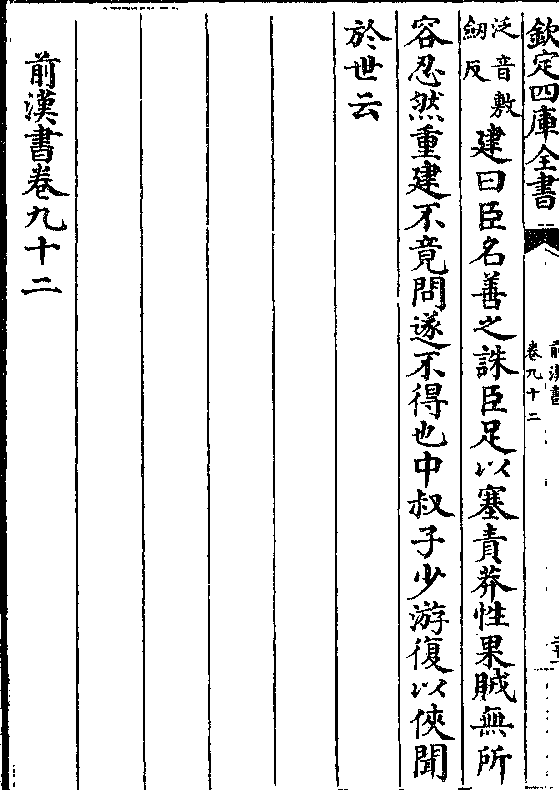 欽定四庫全書
前漢書
卷九十二
泛音敷
劒反
建曰臣名善之誅臣足以塞責莽性果賊無所
容忍然重建不竟問遂不得也中叔子少游復以俠聞
於世云
前漢書卷九十二